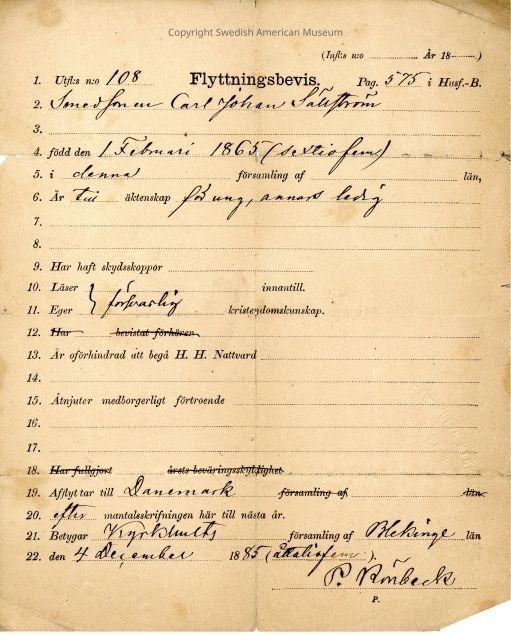 Copyright Swedish American Museum
(Infl:s n:o ........ År 18......)
1. Utfl:s n:o 108 Flyttningsbevis. Pag. 575 i Husf.-B.
2. Smedsonen Carl Johan Sällström
3.
4. född den 1 Februari 1865 (sextiofem)
5. i denna församling af län,
6. Är till äktenskap för ung, annars ledig
7.
8.
9. Har haft skyddskoppor
10. Läser innantill.
11. Eger försvarlig kristendomskunskap.
12. Har bevistat förhören
13. Är oförhindrad att begå H. H. Nattvard
14.
15. Åtnjuter medborgerligt förtroende
16.
17.
18. Har fullgjort årets beväringsskyldighet
19. Afflyttar till Danemark församling af län
20. efter mantalsskrifningen här till nästa år.
21. Betygar Kyrkhults församling af Blekinge län
22. den 4 December 1885 (åttatiofem).
P.